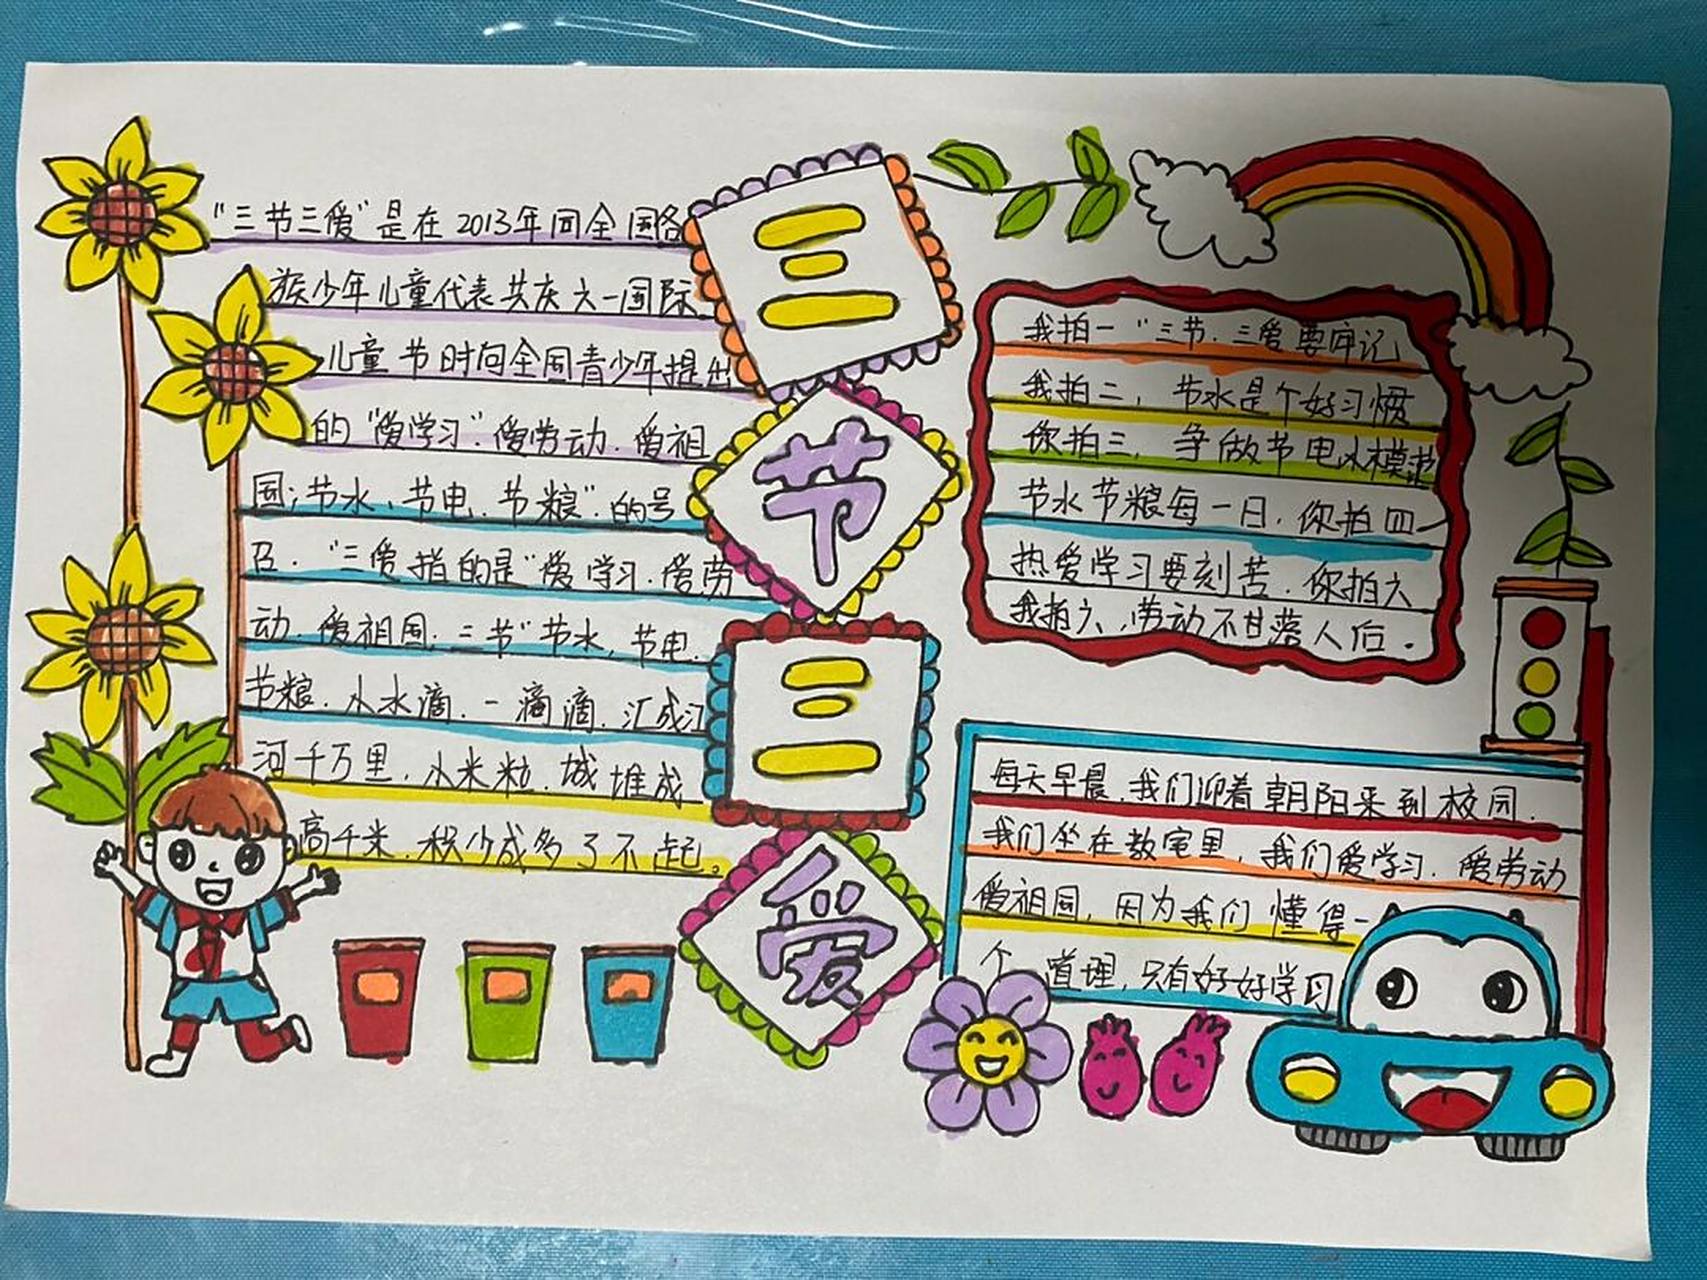 "三节三爱"是在2013年同全国各
族少年儿童代表共庆六一国际
儿童节时向全国青少年提出
的"爱学习".爱劳动.爱祖
国;节水、节电.节粮".的号
召."三爱指的是"爱学习.爱劳
动.爱祖国.三节"节水,节电.
节粮.小水滴.一滴滴.汇成江
河千万里.小米粒.城堆成
高千米.积少成多了不起。
三
节
三
爱
我拍一"三节.三爱要牢记
我拍二,节水是个好习惯
你拍三,争做节电小模范
节水节粮每一日,你拍四
热爱学习要刻苦.你拍六
我拍六,劳动不甘落人后.
每天早晨.我们迎着朝阳来到校园.
我们坐在教室里,我们爱学习.爱劳动
爱祖国,因为我们懂得一
个道理,只有好好学习